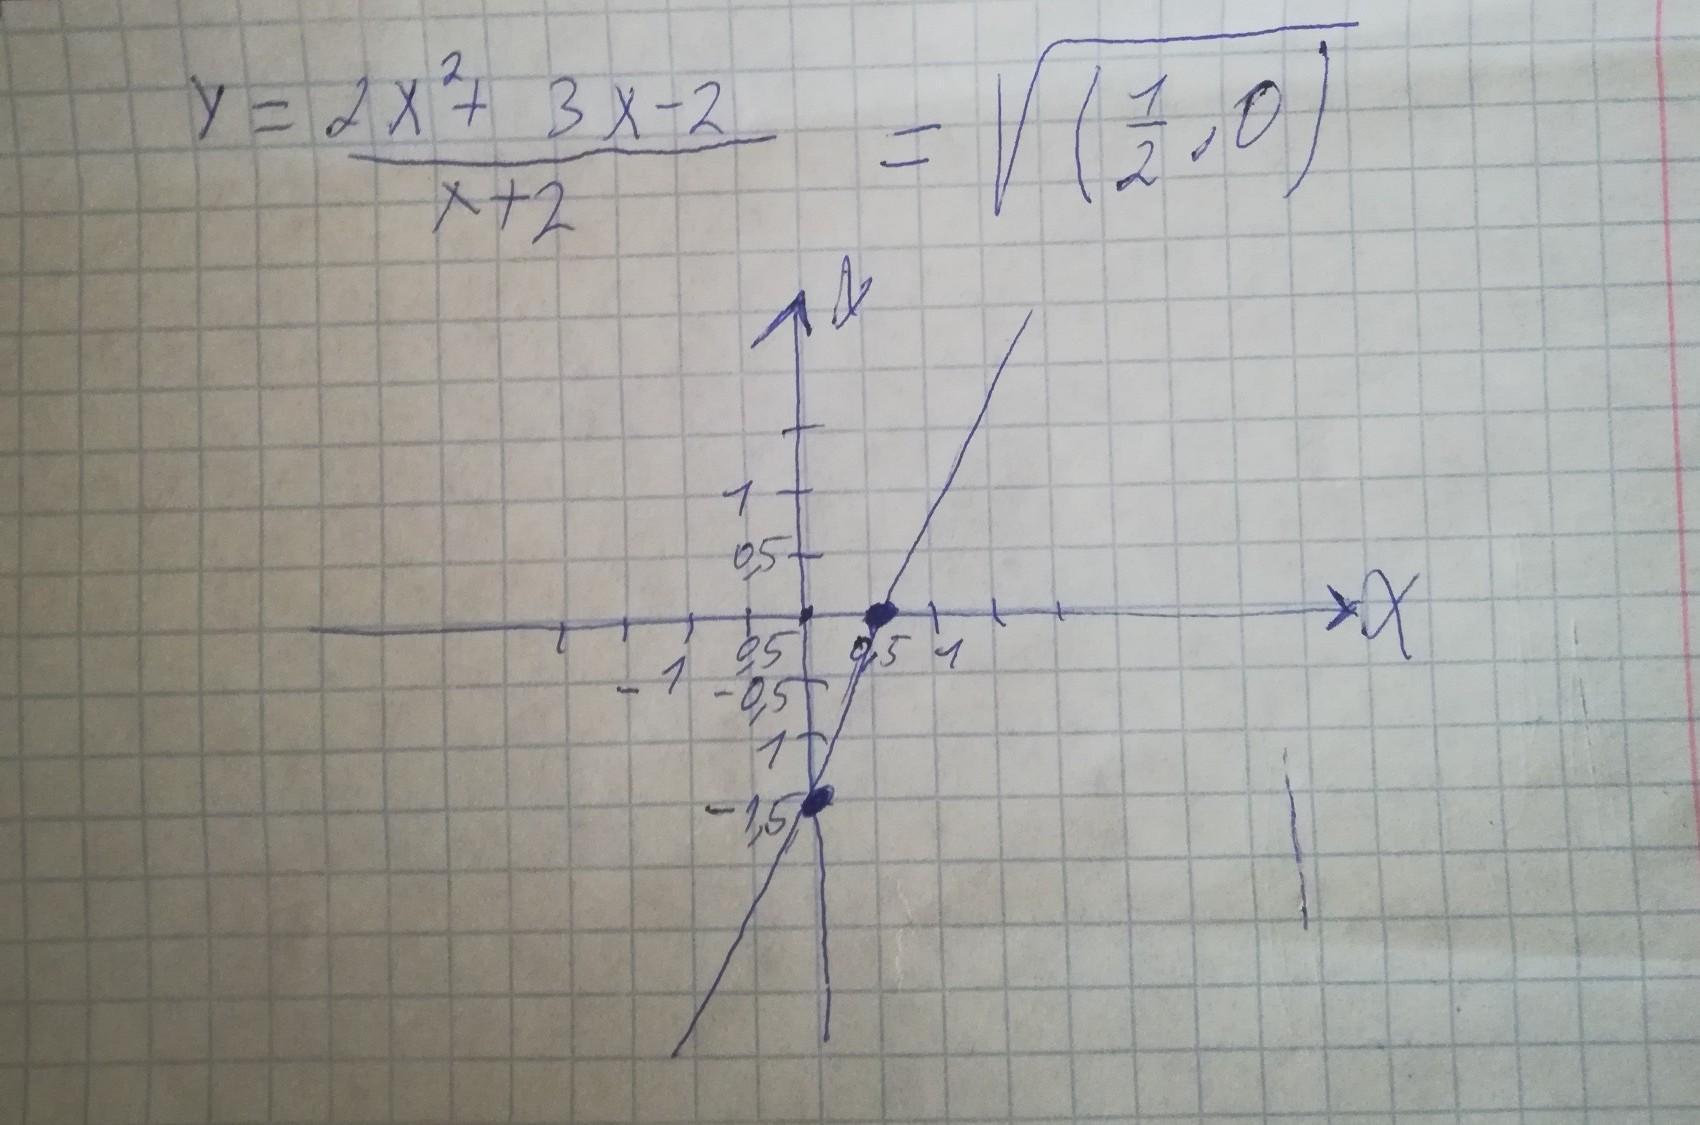 y = (2x² + 3x - 2)/(x + 2) = √(1/2, 0)
y
1
0,5
x
0,5 0,5 1
- 1
-0,5
1
-1,5